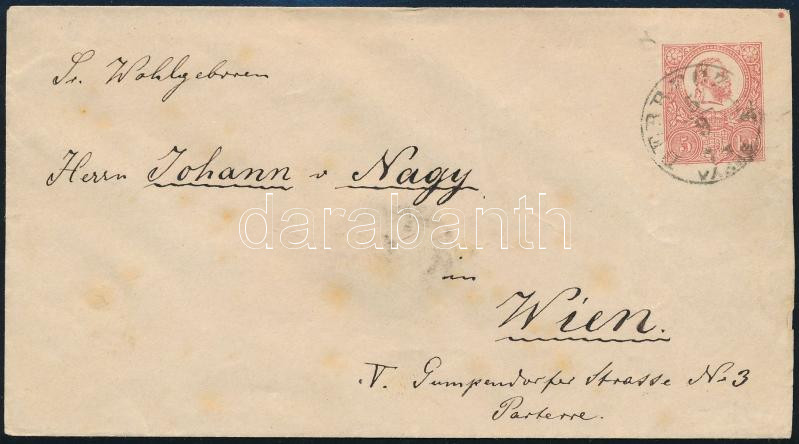 Sr. Wohlgeboren
Herrn Johann v Nagy
darabanth
in
Wien.
V. Gumpendorfer Strasse No 3
Parterre.
5